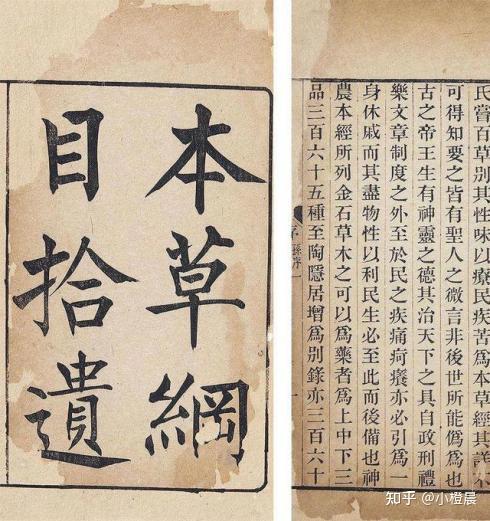 本草綱
目拾遺
氏嘗百草別其性味以療民疾苦為本草經其詳不
可得知要之皆有聖人之微言非後世所能僞為也
古之帝王生有神靈之德其治天下之具自政刑禮
樂文章制度之外至於民之疾痛疴癢亦必引為一
身休戚而其盡物性以利民生必至此而後備也神
農本經所列金石草木之可以為藥者為上中下三
品三百六十五種至陶隱居增為別錄亦三百六十
序
孫序一
知乎 @小橙晨